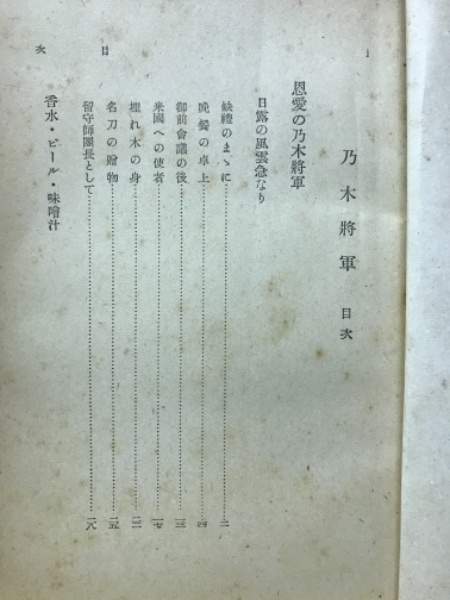 乃木將軍 目次
恩愛の乃木將軍
日露の風雲急なり
缺禮のまゝに……二
晩餐の卓上……四
御前會議の後……一三
米國への使者……一七
埋れ木の身……二二
名刀の贈物……二五
留守師團長として……二八
香水・ビール・味噌汁
目次